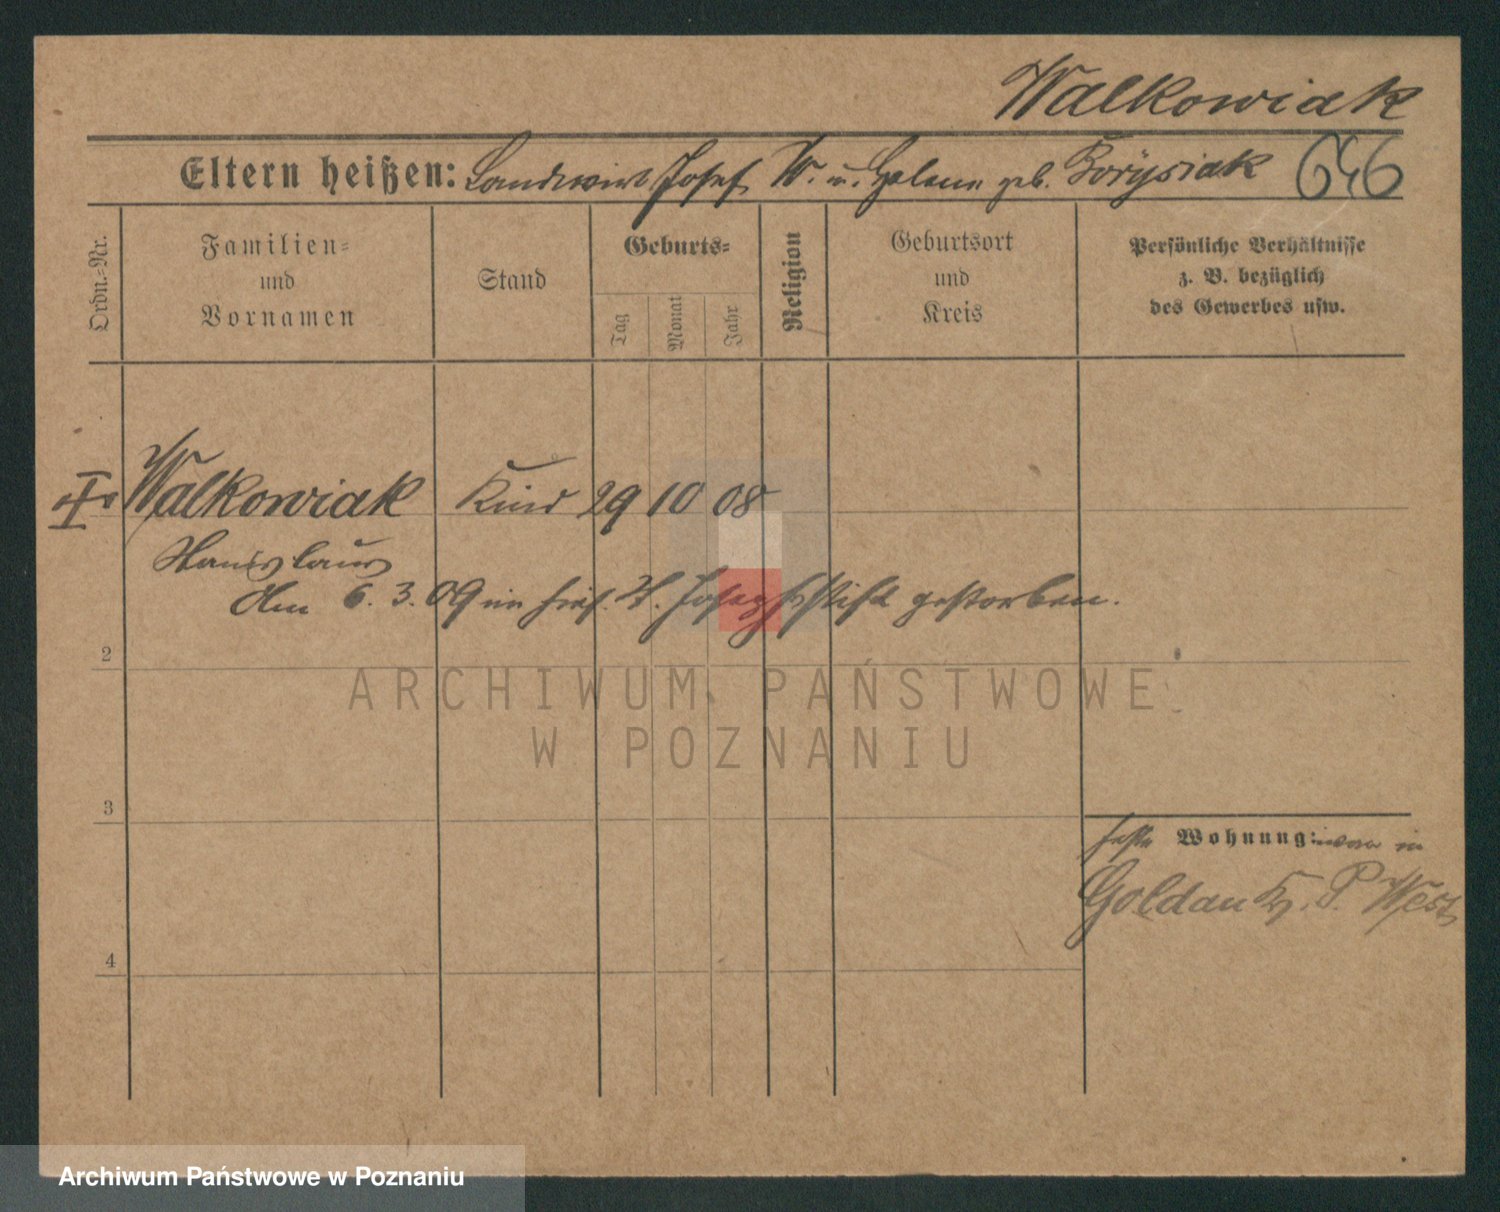 Walkowiak
Eltern heißen: Landwirt Josef W. u. Helene geb. Borysiak 646
Ordn.-Nr.
Familien-
und
Vornamen
Stand
Geburts-
Tag
Monat
Jahr
Religion
Geburtsort
und
Kreis
Persönliche Verhältnisse
z. B. bezüglich
des Gewerbes usw.
Walkowiak Kind 29 10 08
Stanislaus
Am 6. 3. 09 im hies. St. Josephstift gestorben.
2
ARCHIWUM PAŃSTWOWE
W POZNANIU
3
Wohnung: war in
Goldau Kr. P. West
4
Archiwum Państwowe w Poznaniu